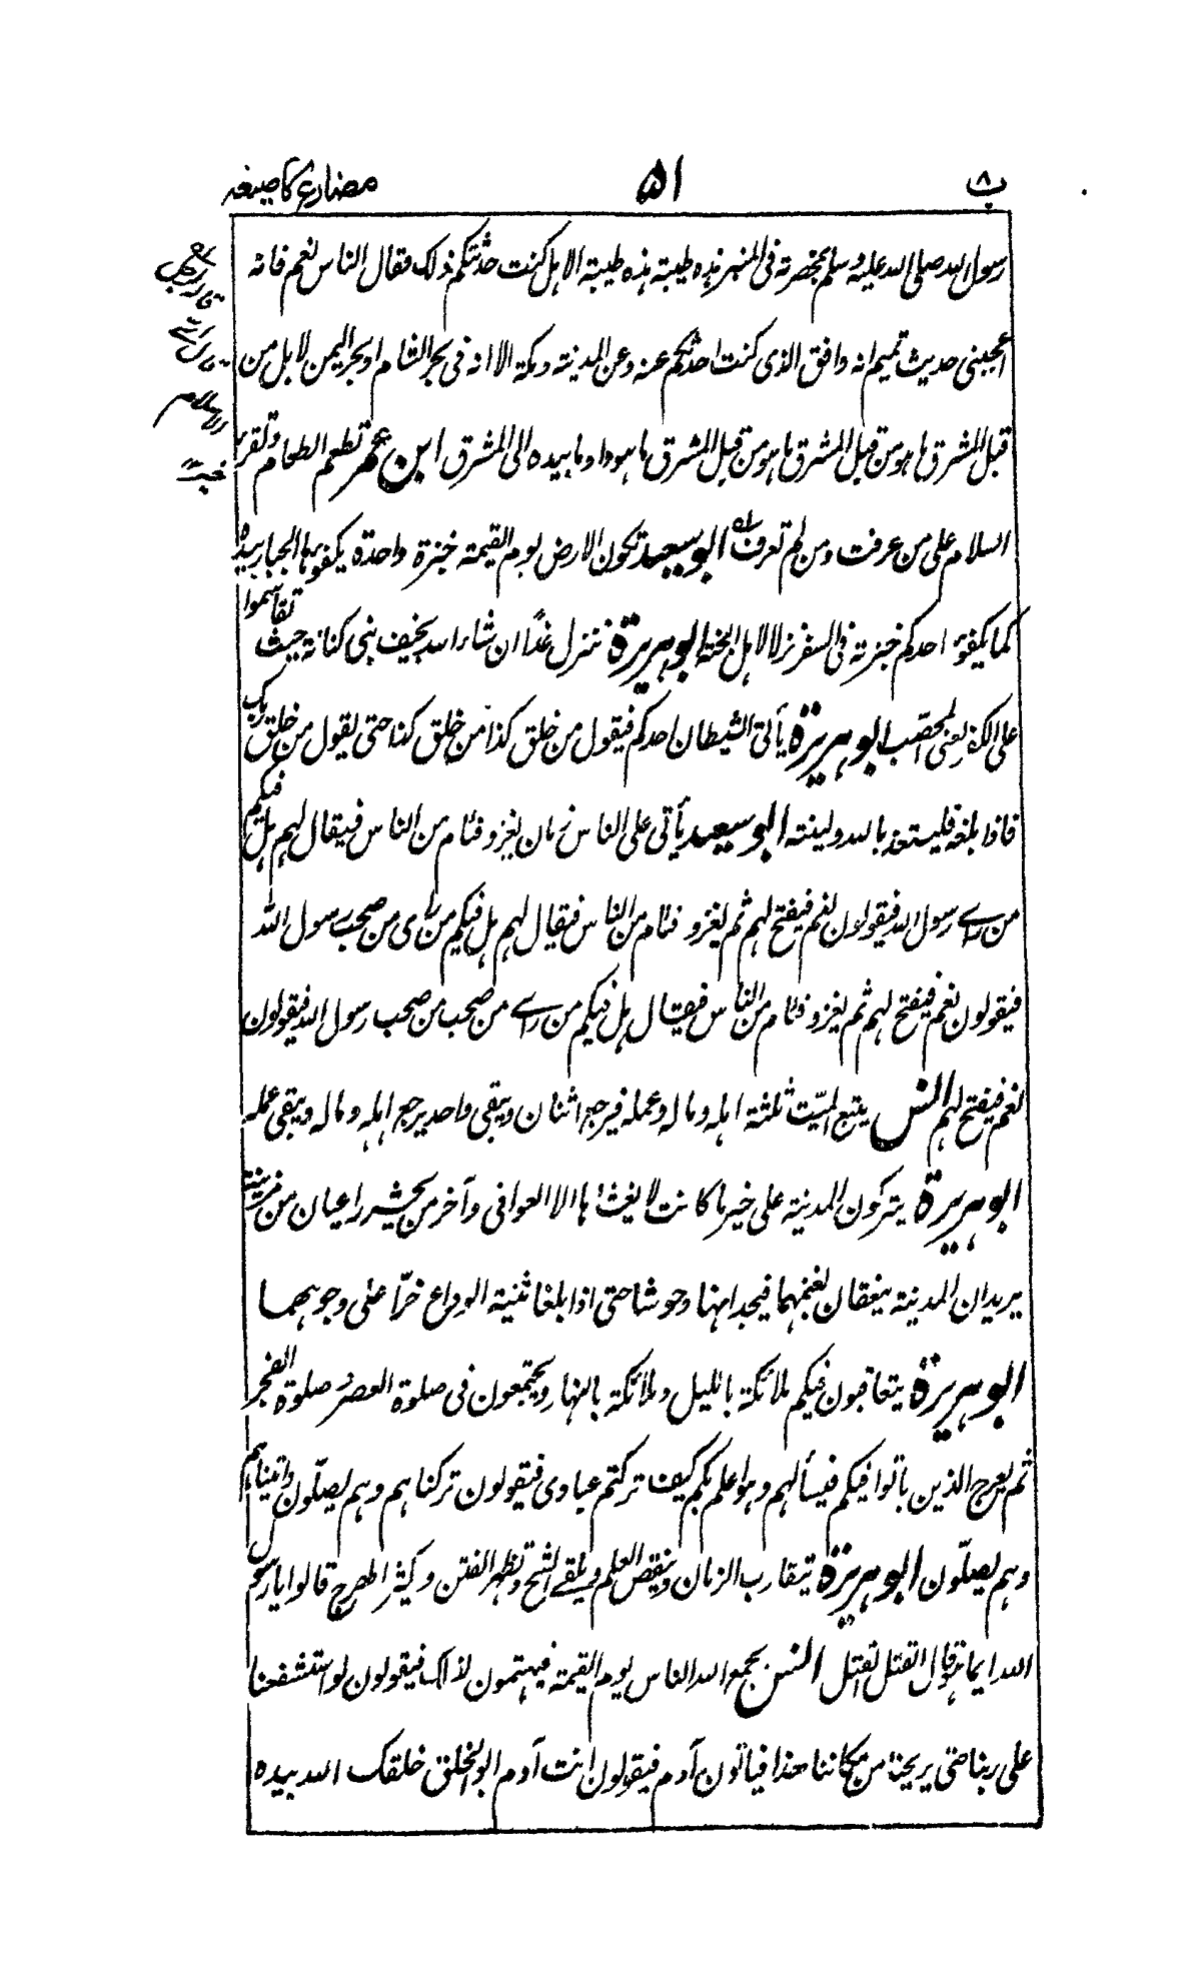 ب۸ ۵۱ مضارع کا صیغہ
رسول الله صلى الله عليه وسلم بمخصرته فى المنبر هذه طيبة هذه طيبة الا هل كنت حدثتكم ذلك فقال الناس نعم فانه
اعجبنى حديث تميم انه وافق الذى كنت احدثكم عنه وعن المدينة ومكة الا انه فى بحر الشام او بحر اليمن لا بل من
قبل المشرق ما هو من قبل المشرق ما هو من قبل المشرق ما هو واومأ بيده الى المشرق ابن عمر تطعم الطعام وتقرئ
السلام على من عرفت ومن لم تعرف ابو سعيد تكون الارض يوم القيمة خبزة واحدة يكفؤها الجبار بيده
كما يكفؤ احدكم خبزته فى السفر نزلا لاهل الجنة ابو هريرة ننزل غدًا ان شاء الله بخيف بنى كنانة حيث تقاسموا
على الكفر يعنى المحصّب ابو هريرة يأتى الشيطان احدكم فيقول من خلق كذا من خلق كذا حتى يقول من خلق ربك
فاذا بلغه فليستعذ بالله ولينته ابو سعيد يأتى على الناس زمان يغزو فئام من الناس فيقال لهم هل فيكم
من راى رسول الله فيقولون نعم فيفتح لهم ثم يغزو فئام من الناس فيقال لهم هل فيكم من راى من صحب رسول الله
فيقولون نعم فيفتح لهم ثم يغزو فئام من الناس فيقال هل فيكم من راى من صحب من صحب رسول الله فيقولون
نعم فيفتح لهم انس يتبع الميّت ثلثة اهله وماله وعمله فيرجع اثنان ويبقى واحد يرجع اهله وماله ويبقى عمله
ابو هريرة يتركون المدينة على خير ما كانت لا يغشاها الا العوافى وآخر من يحشر راعيان من مزينة
يريدان المدينة ينعقان بغنمهما فيجدانها وحوشا حتى اذا بلغا ثنية الوداع خرّا على وجوههما
ابو هريرة يتعاقبون فيكم ملائكة بالليل وملائكة بالنهار ويجتمعون فى صلوة العصر وصلوة الفجر
ثم يعرج الذين باتوا فيكم فيسألهم وهو اعلم بكم كيف تركتم عبادى فيقولون تركناهم وهم يصلّون واتيناهم
وهم يصلّون ابو هريرة يتقارب الزمان وينقص العلم ويلقى الشح وتظهر الفتن ويكثر الهرج قالوا يا رسول
الله ايما هو قال القتل القتل انس يجمع الله الناس يوم القيمة فيهتمون لذلك فيقولون لو استشفعنا
على ربنا حتى يريحنا من مكاننا هذا فيأتون آدم فيقولون انت آدم ابو الخلق خلقك الله بيده